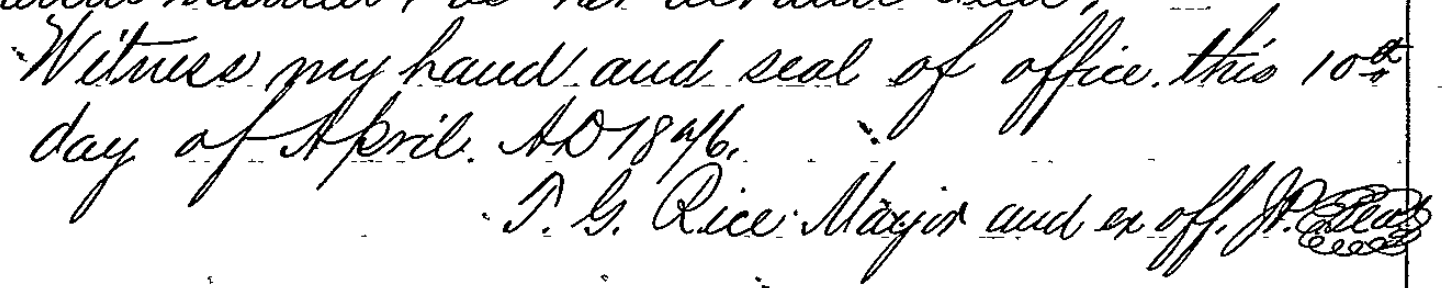 Witness my hand and seal of office. this 10th
day of April. AD 1876.
T. G. Rice Mayor and ex off. J.P. Seal